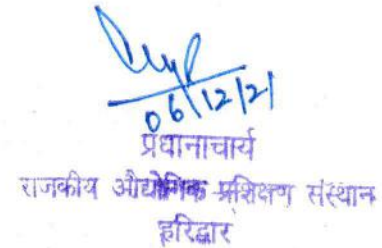 06/12/21
प्रधानाचार्य
राजकीय औद्योगिक प्रशिक्षण संस्थान
हरिद्वार